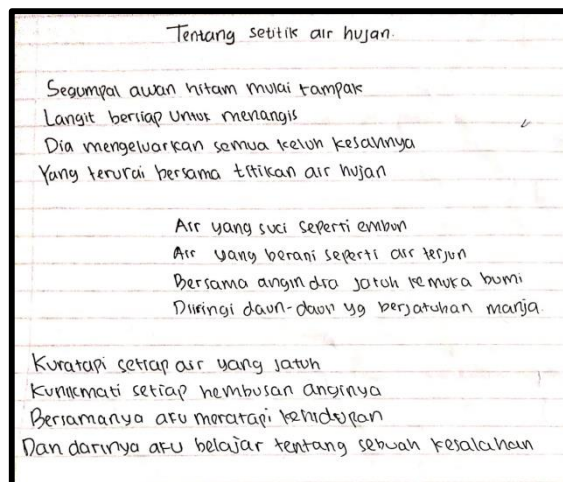 Tentang setitik air hujan.
Segumpal awan hitam mulai tampak
Langit bersiap untuk menangis
Dia mengeluarkan semua keluh kesahnya
Yang terurai bersama titikan air hujan
Air yang suci seperti embun
Air yang berani seperti air terjun
Bersama angin dia jatuh kemuka bumi
Diiringi daun-daun yg berjatuhan manja
Kuratapi setiap air yang jatuh
Kunikmati setiap hembusan anginya
Bersamanya aku meratapi kehidupan
Dan darinya aku belajar tentang sebuah kesalahan